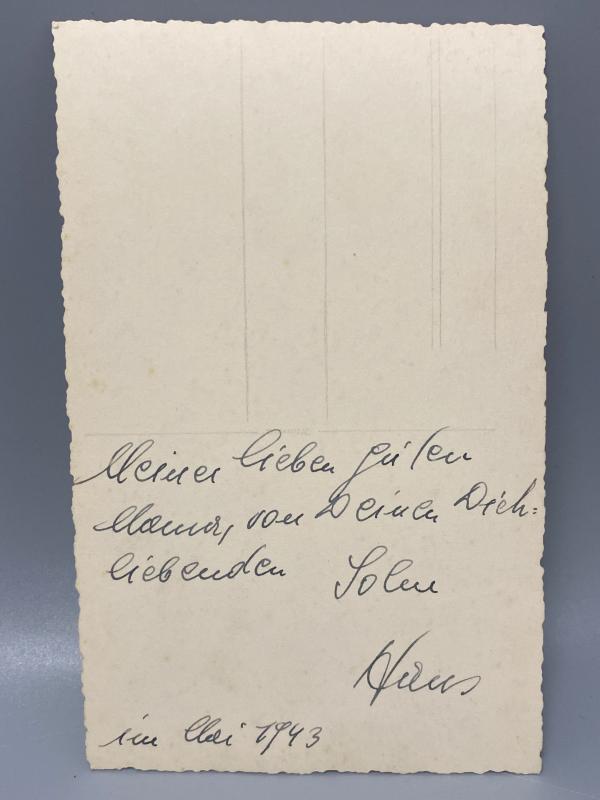 Meiner lieben guten
Mama, von Deinen Dich=
liebenden Sohn
Hans
im Mai 1943